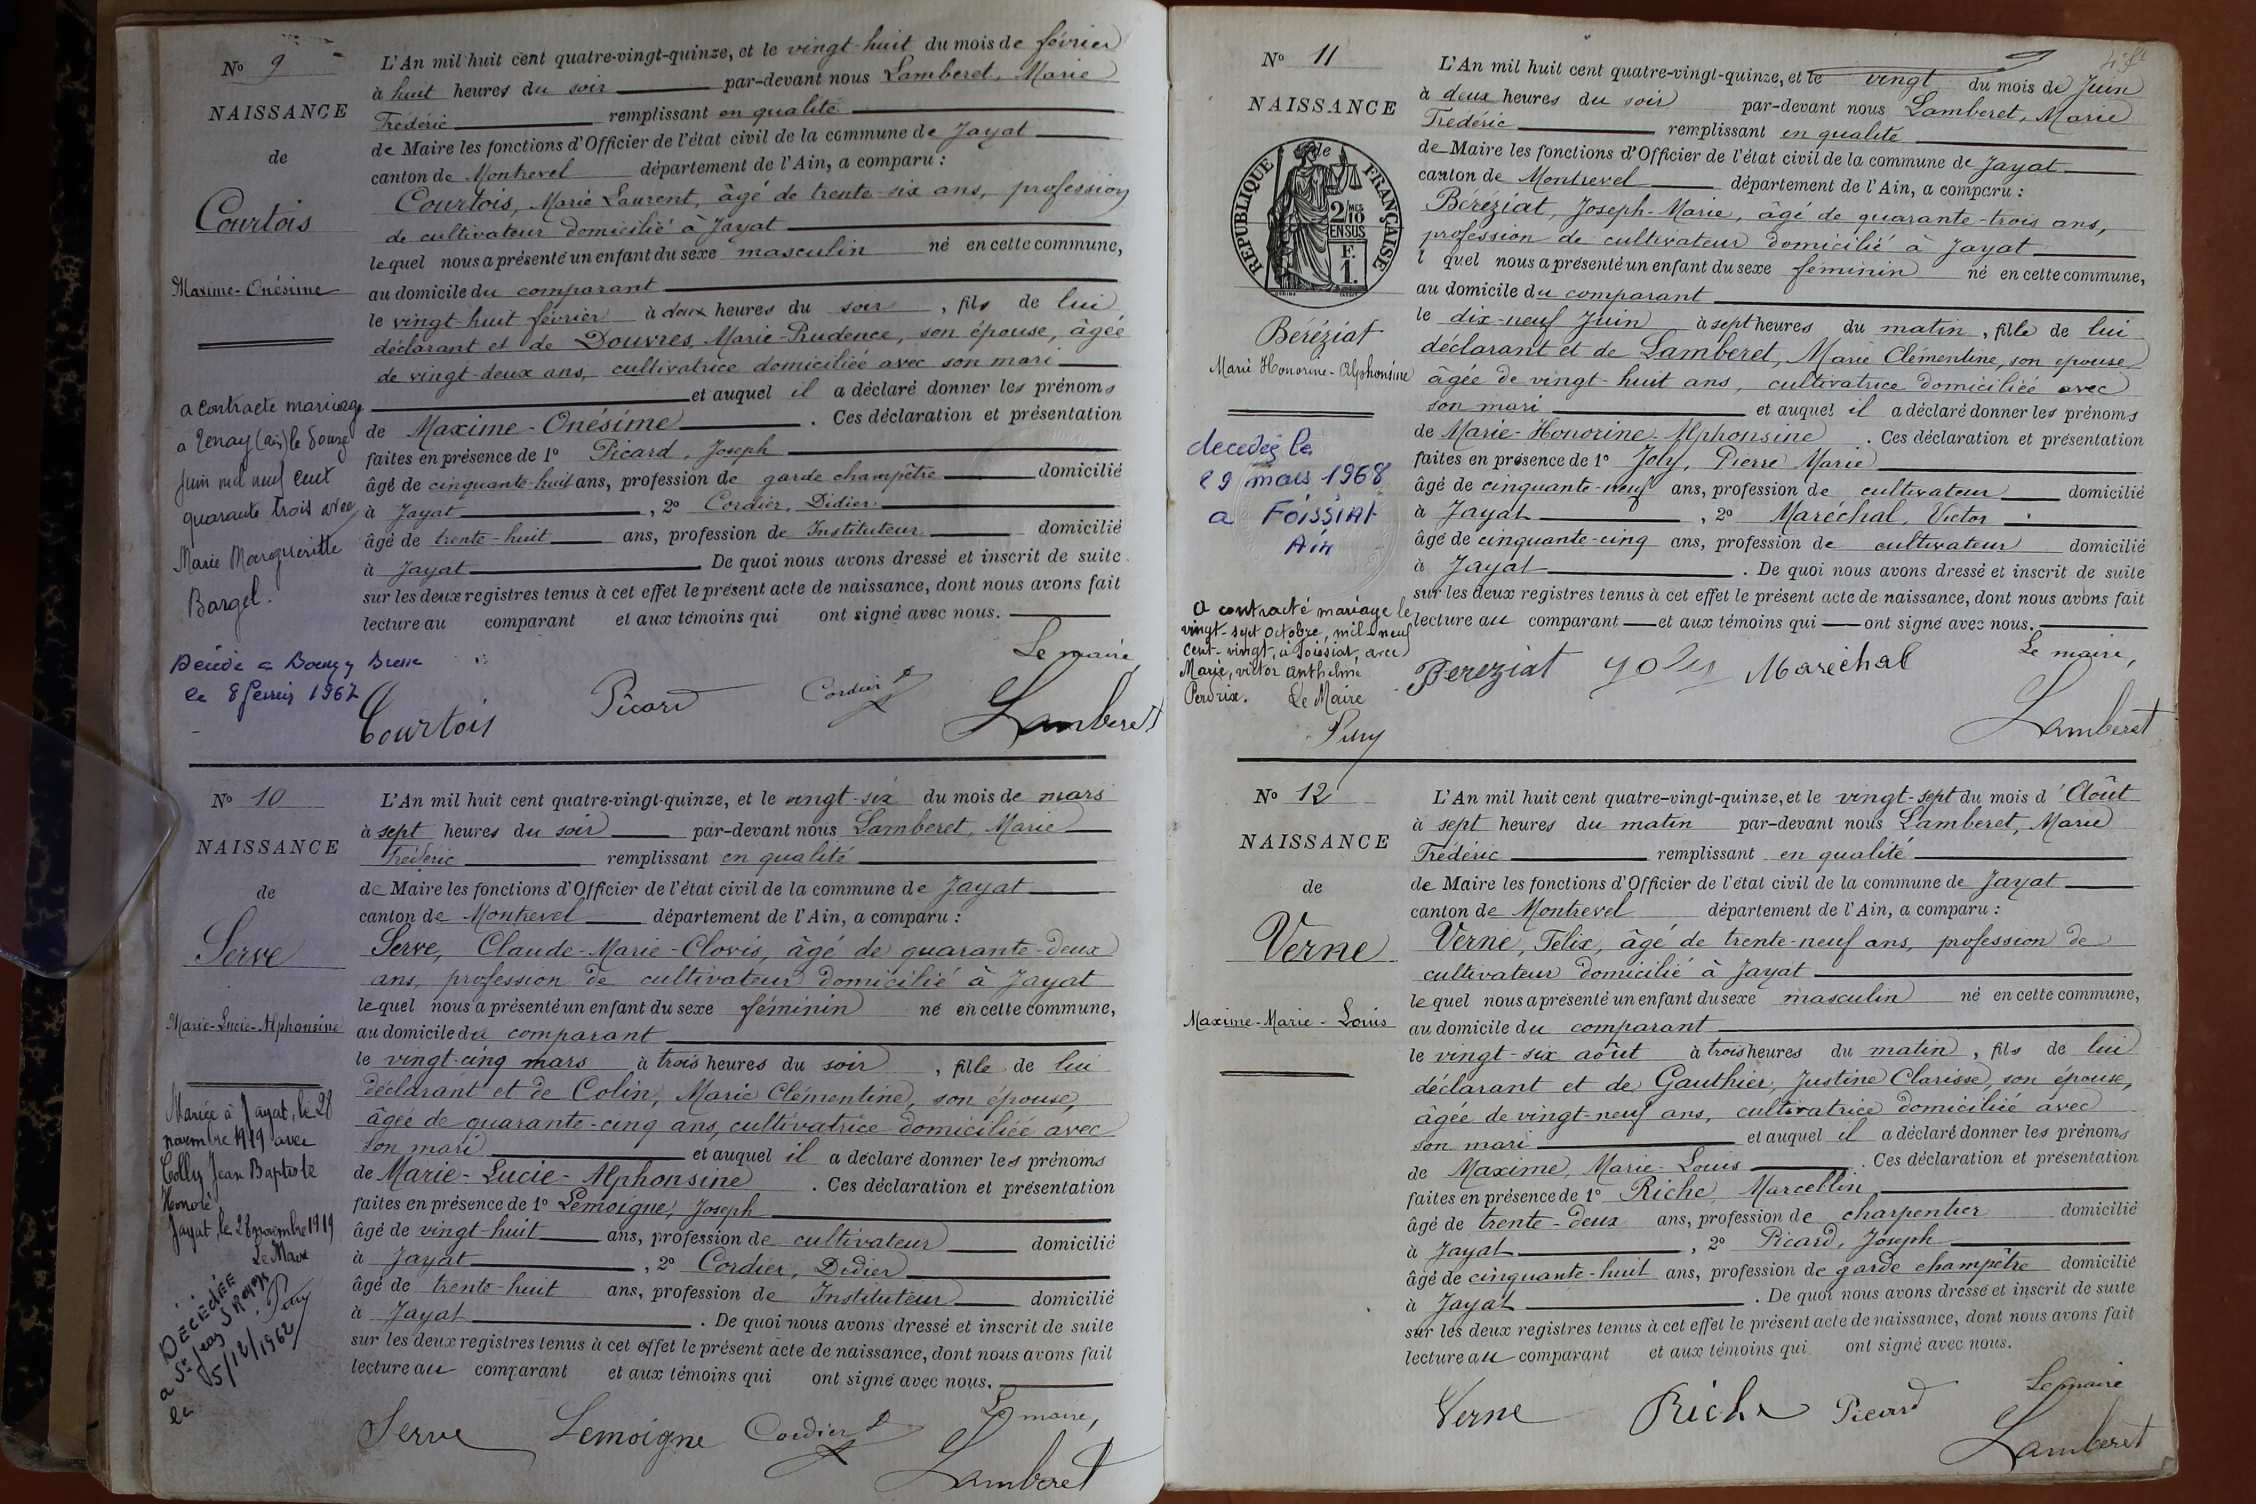 N° 9
NAISSANCE
de
Courtois
Maxime-Onésime
a contracté mariage
a Tenay (Ain) le douze
Juin mil neuf cent
quarante trois avec
Marie Marguerite
Bargel.
Décédé a Bourg en Bresse
le 8 février 1967
L'An mil huit cent quatre-vingt-quinze, et le vingt-huit du mois de février
à huit heures du soir par-devant nous Lamberet, Marie
Frédéric remplissant en qualité
de Maire les fonctions d'Officier de l'état civil de la commune de Jayat
canton de Montrevel département de l'Ain, a comparu :
Courtois, Marie Laurent, âgé de trente-six ans, profession
de cultivateur domicilié à Jayat
lequel nous a présenté un enfant du sexe masculin né en cette commune,
au domicile du comparant
le vingt-huit février à deux heures du soir, fils de lui
déclarant et de Douvres, Marie-Prudence, son épouse, âgée
de vingt-deux ans, cultivatrice domiciliée avec son mari
et auquel il a déclaré donner les prénoms
de Maxime-Onésime. Ces déclaration et présentation
faites en présence de 1° Picard, Joseph
âgé de cinquante-huit ans, profession de garde champêtre domicilié
à Jayat, 2° Cordier, Didier.
âgé de trente-huit ans, profession de Instituteur domicilié
à Jayat De quoi nous avons dressé et inscrit de suite
sur les deux registres tenus à cet effet le présent acte de naissance, dont nous avons fait
lecture au comparant et aux témoins qui ont signé avec nous.
Le maire,
Courtois Picard Cordier D Lamberet
N° 10
NAISSANCE
de
Serve
Marie-Lucie-Alphonsine
Mariée à Jayat, le 28
novembre 1919 avec
Colly Jean Baptiste
Honoré
Jayat, le 28 novembre 1919
Le Maire
DÉCÉDÉE
le 5/12/1962
L'An mil huit cent quatre-vingt-quinze, et le vingt-six du mois de mars
à sept heures du soir par-devant nous Lamberet, Marie
Frédéric remplissant en qualité
de Maire les fonctions d'Officier de l'état civil de la commune de Jayat
canton de Montrevel département de l'Ain, a comparu :
Serve, Claude-Marie-Clovis, âgé de quarante-deux
ans, profession de cultivateur domicilié à Jayat
lequel nous a présenté un enfant du sexe féminin né en cette commune,
au domicile du comparant
le vingt-cinq mars à trois heures du soir, fille de lui
déclarant et de Colin, Marie Clémentine, son épouse,
âgée de quarante-cinq ans, cultivatrice domiciliée avec
son mari et auquel il a déclaré donner les prénoms
de Marie-Lucie-Alphonsine. Ces déclaration et présentation
faites en présence de 1° Lemoigne, Joseph
âgé de vingt-huit ans, profession de cultivateur domicilié
à Jayat, 2° Cordier, Didier
âgé de trente-huit ans, profession de Instituteur domicilié
à Jayat. De quoi nous avons dressé et inscrit de suite
sur les deux registres tenus à cet effet le présent acte de naissance, dont nous avons fait
lecture au comparant et aux témoins qui ont signé avec nous.
Le maire,
Serve Lemoigne Cordier D Lamberet
N° 11
NAISSANCE
de
RÉPUBLIQUE FRANÇAISE
2/10MES
EN SUS
F.
1.
Béréziat
Marie Honorine-Alphonsine
décédée le
29 mars 1968
a FOISSIAT
Ain
A contracté mariage le
vingt-sept octobre, mil-neuf
cent-vingt, à Foissiat, avec
Marie, victor anthelme
Perdrix. Le Maire
L'An mil huit cent quatre-vingt-quinze, et le vingt du mois de Juin
à deux heures du soir par-devant nous Lamberet, Marie
Frédéric remplissant en qualité
de Maire les fonctions d'Officier de l'état civil de la commune de Jayat
canton de Montrevel département de l'Ain, a comparu :
Béréziat, Joseph-Marie, âgé de quarante-trois ans,
profession de cultivateur domicilié à Jayat
l quel nous a présenté un enfant du sexe féminin né en cette commune,
au domicile du comparant
le dix-neuf Juin à sept heures du matin, fille de lui
déclarant et de Lamberet, Marie Clémentine, son épouse
âgée de vingt-huit ans, cultivatrice domiciliée avec
son mari et auquel il a déclaré donner les prénoms
de Marie-Honorine-Alphonsine. Ces déclaration et présentation
faites en présence de 1° Joly, Pierre Marie
âgé de cinquante-neuf ans, profession de cultivateur domicilié
à Jayat, 2° Maréchal, Victor
âgé de cinquante-cinq ans, profession de cultivateur domicilié
à Jayat. De quoi nous avons dressé et inscrit de suite
sur les deux registres tenus à cet effet le présent acte de naissance, dont nous avons fait
lecture au comparant et aux témoins qui ont signé avec nous.
Le maire,
Bereziat Joly Maréchal
Lamberet
N° 12
NAISSANCE
de
Verne
Maxime-Marie-Louis
L'An mil huit cent quatre-vingt-quinze, et le vingt-sept du mois d'Août
à sept heures du matin par-devant nous Lamberet, Marie
Frédéric remplissant en qualité
de Maire les fonctions d'Officier de l'état civil de la commune de Jayat
canton de Montrevel département de l'Ain, a comparu :
Verne, Félix, âgé de trente-neuf ans, profession de
cultivateur domicilié à Jayat
lequel nous a présenté un enfant du sexe masculin né en cette commune,
au domicile du comparant
le vingt-six août à trois heures du matin, fils de lui
déclarant et de Gauthier, Justine Clarisse, son épouse,
âgée de vingt-neuf ans, cultivatrice domiciliée avec
son mari et auquel il a déclaré donner les prénoms
de Maxime, Marie-Louis. Ces déclaration et présentation
faites en présence de 1° Riche, Marcellin
âgé de trente-deux ans, profession de charpentier domicilié
à Jayat, 2° Picard, Joseph
âgé de cinquante-huit ans, profession de garde champêtre domicilié
à Jayat. De quoi nous avons dressé et inscrit de suite
sur les deux registres tenus à cet effet le présent acte de naissance, dont nous avons fait
lecture au comparant et aux témoins qui ont signé avec nous.
Le maire
Verne Riche Picard
Lamberet